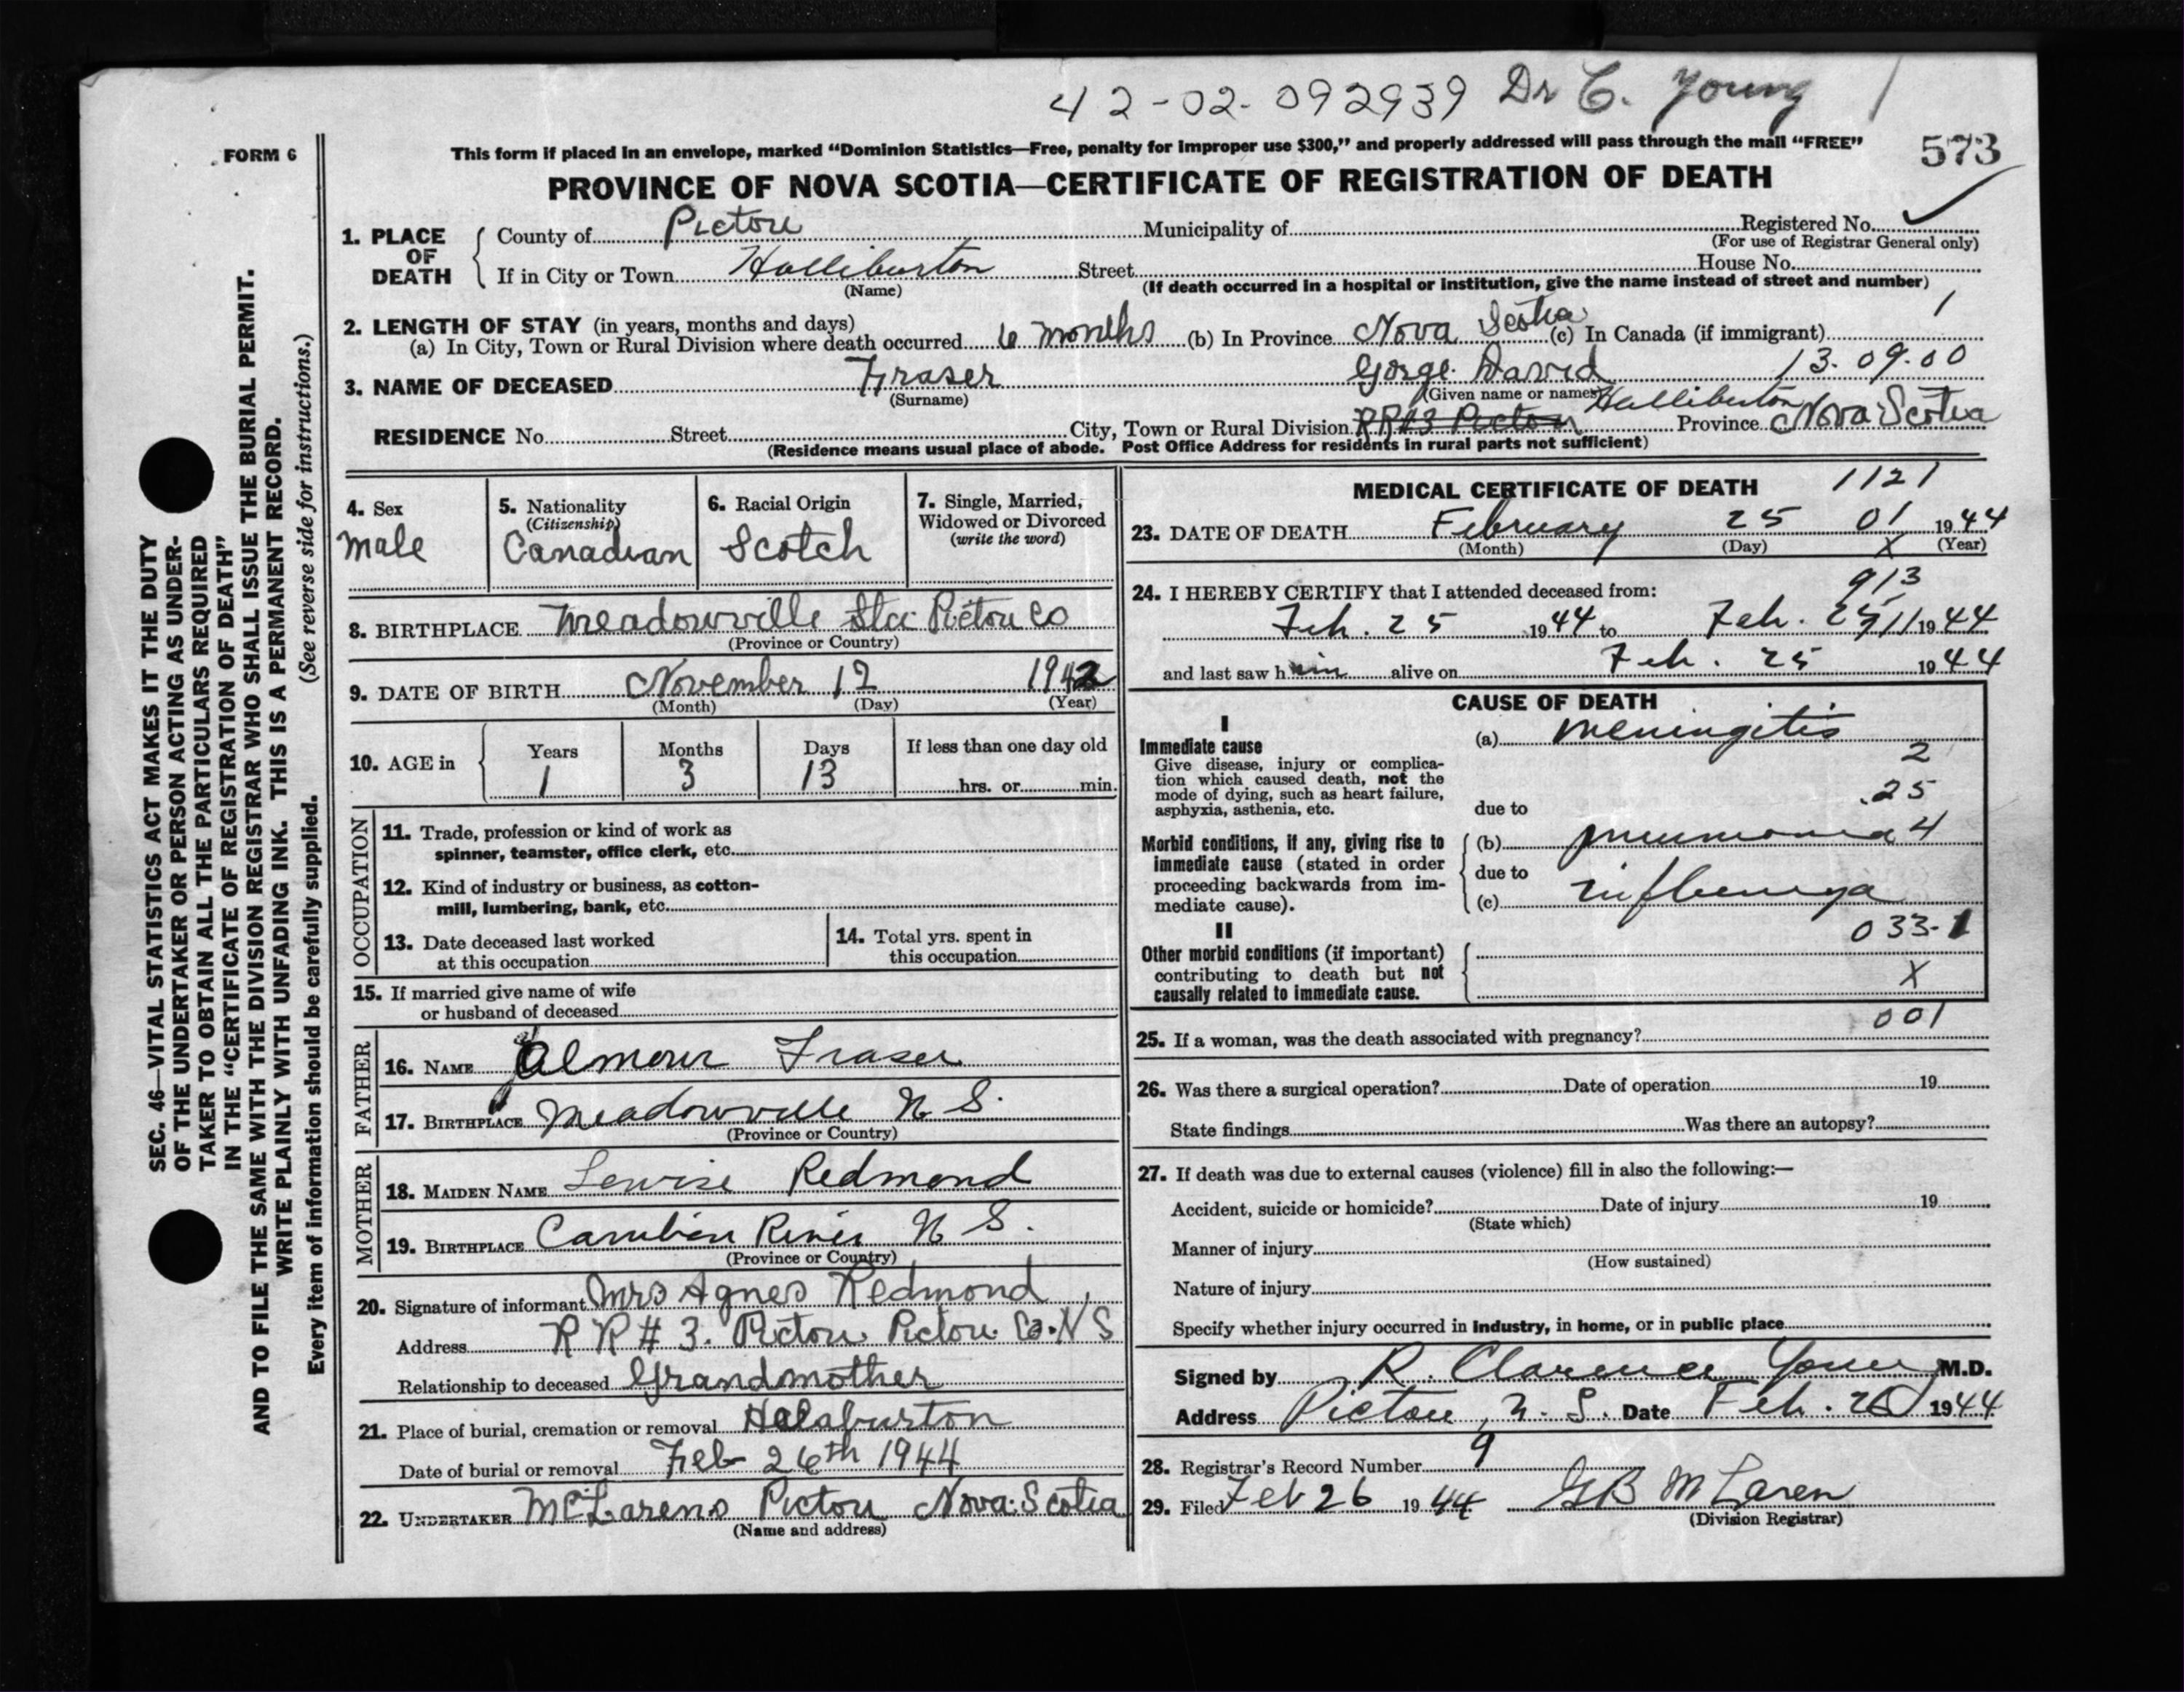 42-02-092939 Dr C. Young
FORM 6
This form if placed in an envelope, marked “Dominion Statistics—Free, penalty for improper use $300,” and properly addressed will pass through the mail “FREE”
573
PROVINCE OF NOVA SCOTIA—CERTIFICATE OF REGISTRATION OF DEATH
1. PLACE OF DEATH
County of Pictou Municipality of Registered No.
(For use of Registrar General only)
If in City or Town Halliburton Street House No.
(Name) (If death occurred in a hospital or institution, give the name instead of street and number)
2. LENGTH OF STAY (in years, months and days)
(a) In City, Town or Rural Division where death occurred 6 months (b) In Province Nova Scotia (c) In Canada (if immigrant) 1
3. NAME OF DECEASED Fraser Gorge David 13.09.00
(Surname) (Given name or names)
RESIDENCE No. Street City, Town or Rural Division RR#3 Pictou Halliburton Province Nova Scotia
(Residence means usual place of abode. Post Office Address for residents in rural parts not sufficient)
4. Sex
Male
5. Nationality
(Citizenship)
Canadian
6. Racial Origin
Scotch
7. Single, Married,
Widowed or Divorced
(write the word)
8. BIRTHPLACE Meadowville Sta. Pictou Co
(Province or Country)
9. DATE OF BIRTH November 12 1942
(Month) (Day) (Year)
10. AGE in
Years Months Days If less than one day old
1 3 13 hrs. or min.
OCCUPATION
11. Trade, profession or kind of work as
spinner, teamster, office clerk, etc.
12. Kind of industry or business, as cotton-
mill, lumbering, bank, etc.
13. Date deceased last worked
at this occupation
14. Total yrs. spent in
this occupation
15. If married give name of wife
or husband of deceased
FATHER
16. NAME Almour Fraser
17. BIRTHPLACE Meadowville N.S.
(Province or Country)
MOTHER
18. MAIDEN NAME Lewise Redmond
19. BIRTHPLACE Caribou River N S.
(Province or Country)
20. Signature of informant Mrs Agnes Redmond
Address R R # 3. Pictou Pictou Co. N S
Relationship to deceased Grandmother
21. Place of burial, cremation or removal Halaburton
Date of burial or removal Feb 26th 1944
22. UNDERTAKER McLarens Pictou Nova Scotia
(Name and address)
MEDICAL CERTIFICATE OF DEATH 1121
23. DATE OF DEATH February 25 01 1944
(Month) (Day) X (Year)
24. I HEREBY CERTIFY that I attended deceased from: 913
Feb. 25 1944 to Feb. 25 11 1944
and last saw him alive on Feb. 25 1944
CAUSE OF DEATH
I
Immediate cause
Give disease, injury or complica-
tion which caused death, not the
mode of dying, such as heart failure,
asphyxia, asthenia, etc.
(a) Meningitis
2
.25
due to
Morbid conditions, if any, giving rise to
immediate cause (stated in order
proceeding backwards from im-
mediate cause).
(b) pneumonia 4
due to
(c) influenza
033-1
II
Other morbid conditions (if important)
contributing to death but not
causally related to immediate cause.
X
001
25. If a woman, was the death associated with pregnancy?
26. Was there a surgical operation? Date of operation 19
State findings Was there an autopsy?
27. If death was due to external causes (violence) fill in also the following:—
Accident, suicide or homicide? Date of injury 19
(State which)
Manner of injury
(How sustained)
Nature of injury
Specify whether injury occurred in industry, in home, or in public place
Signed by R. Clarence Young M.D.
Address Pictou, N. S. Date Feb. 26 1944
28. Registrar's Record Number 9
29. Filed Feb 26 1944 GB McLaren
(Division Registrar)
SEC. 46—VITAL STATISTICS ACT MAKES IT THE DUTY
OF THE UNDERTAKER OR PERSON ACTING AS UNDER-
TAKER TO OBTAIN ALL THE PARTICULARS REQUIRED
IN THE “CERTIFICATE OF REGISTRATION OF DEATH”
AND TO FILE THE SAME WITH THE DIVISION REGISTRAR WHO SHALL ISSUE THE BURIAL PERMIT.
WRITE PLAINLY WITH UNFADING INK. THIS IS A PERMANENT RECORD.
Every item of information should be carefully supplied. (See reverse side for instructions.)